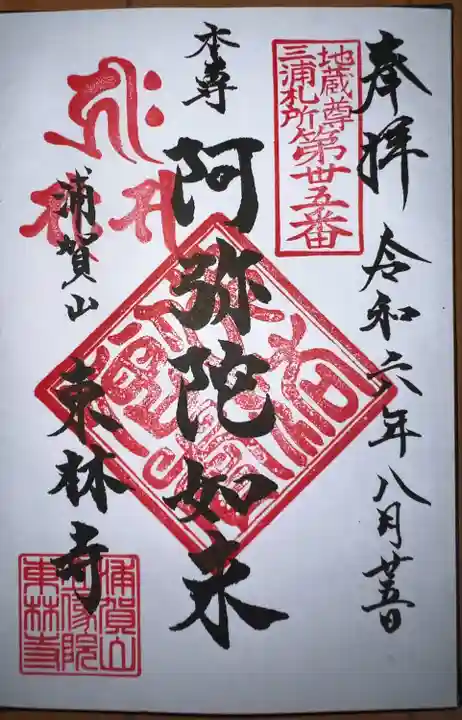 奉拝
令和六年八月廿五日
地蔵尊
三浦札所第卅五番
本尊
阿弥陀如来
浦賀山
東林寺
浦賀山
東林寺